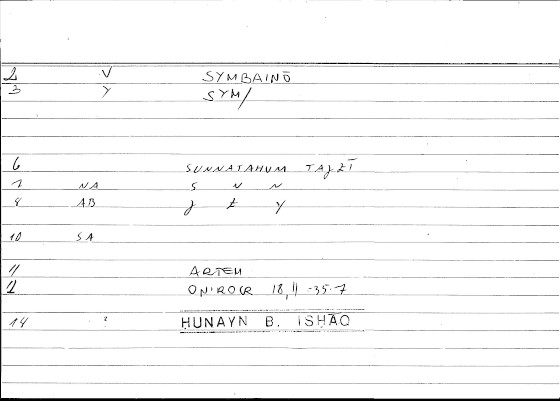 2 V SYMBAINŌ
3 Y SYM/
6 SUNNATAHUM TAǧZĪ
7 NA S N N
8 AB ǧ Z Y
10 SA
11 ARTEM
12 ONIROCR 18,11 -35.7
14 ? HUNAYN B. ISHĀQ